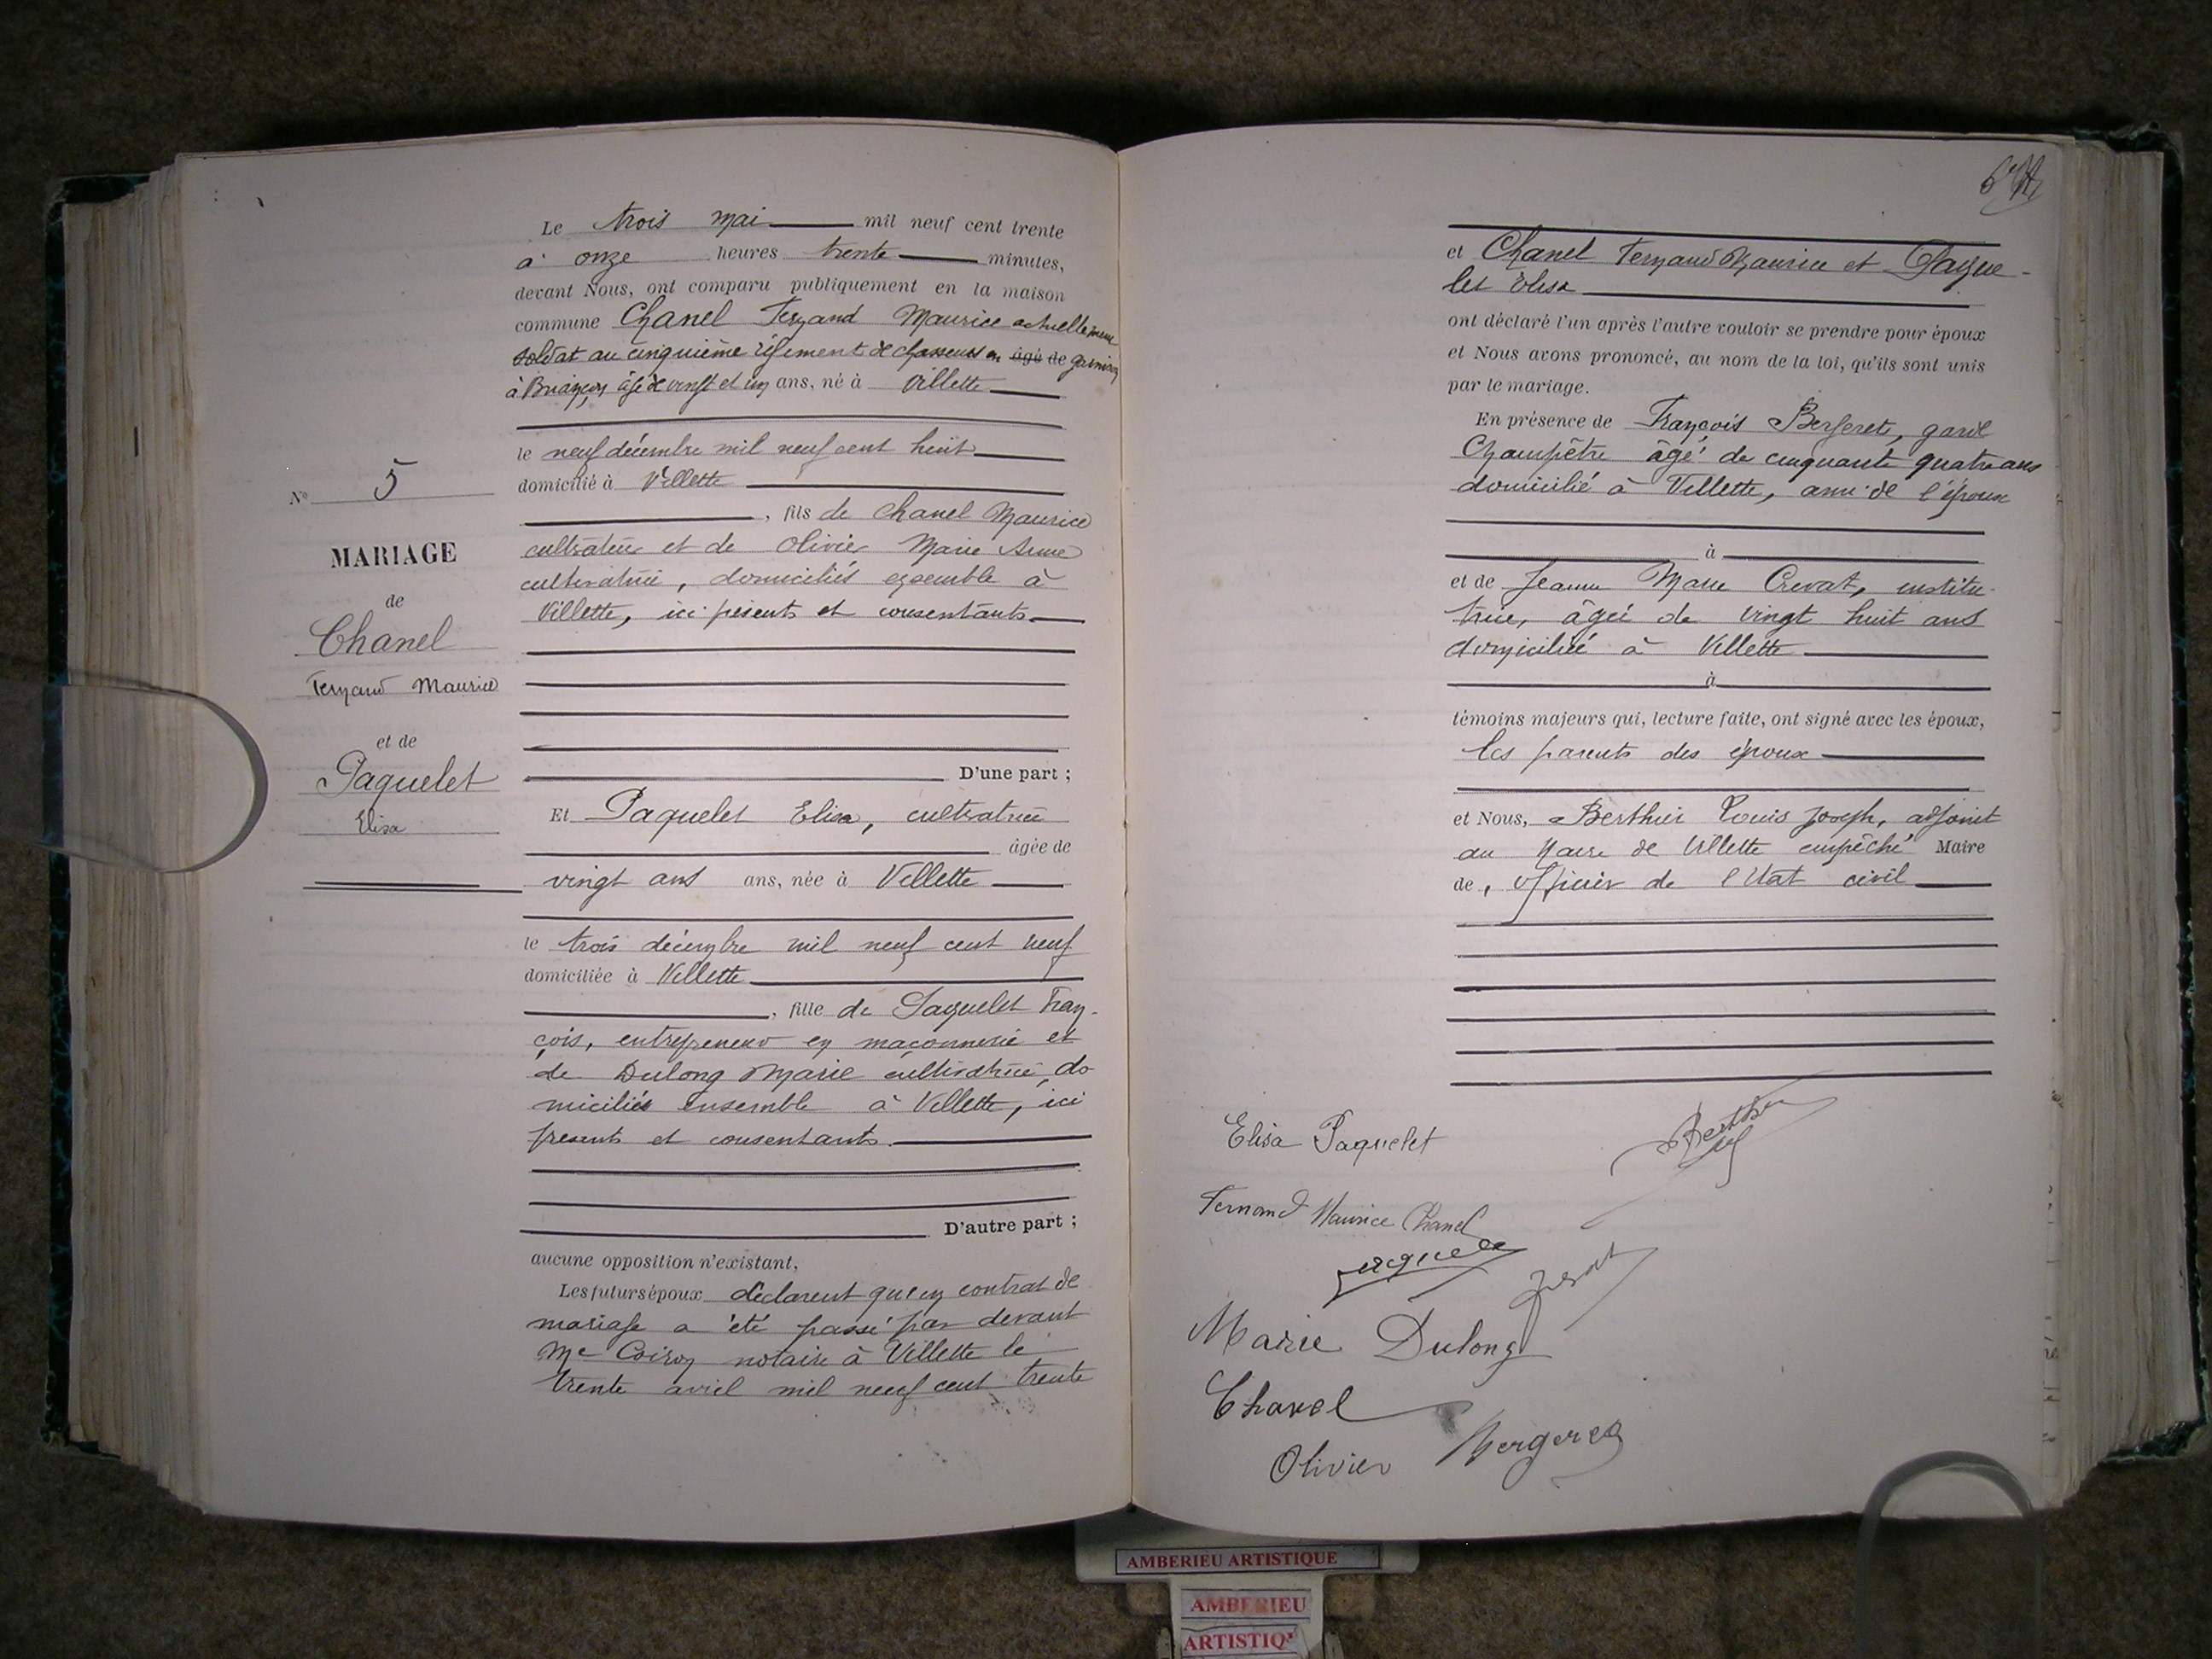 Le trois mai mil neuf cent trente
à onze heures trente minutes,
devant Nous, ont comparu publiquement en la maison
commune Chanel Fernand Maurice actuellement
soldat au cinquième régiment de chasseurs en âgé de garnison
à Briançon âgé de vingt et un ans, né à Villette
le neuf décembre mil neuf cent huit
domicilié à Villette
, fils de Chanel Maurice
cultivateur et de Olivier Marie
cultivatrice, domiciliés ensemble à
Villette, ici présents et consentants
D'une part ;
Et Paquelet Elisa, cultivatrice
âgée de
vingt ans ans, née à Villette
le trois décembre mil neuf cent neuf
domiciliée à Villette
, fille de Paquelet Fran-
çois, entrepreneur en maçonnerie et
de Dulong Marie cultivatrice, do
miciliés ensemble à Villette, ici
présents et consentants
D'autre part ;
aucune opposition n'existant,
Les futurs époux déclarent qu'un contrat de
mariage a été passé par devant
Me notaire à Villette le
trente avril mil neuf cent trente
N° 5
MARIAGE
de
Chanel
Fernand Maurice
et de
Paquelet
Elisa
et Chanel Fernand Maurice et Paque-
let Elisa
ont déclaré l'un après l'autre vouloir se prendre pour époux
et Nous avons prononcé, au nom de la loi, qu'ils sont unis
par le mariage.
En présence de François Bergeret, garde
Champêtre âgé de cinquante quatre ans
domicilié à Villette, ami de l'époux
à
et de Jeanne Marie Crevat, institu-
trice, âgée de vingt huit ans
domiciliée à Villette
à
témoins majeurs qui, lecture faite, ont signé avec les époux,
les parents des époux
et Nous, Berthier Louis Joseph, adjoint
au Maire de Villette empêché Maire
de, officier de l'Etat civil
Elisa Paquelet
Berthier
Fernand Maurice Chanel
Marie Dulong
Chanel
Olivier Bergeret
AMBERIEU ARTISTIQUE
AMBERIEU
ARTISTIQ